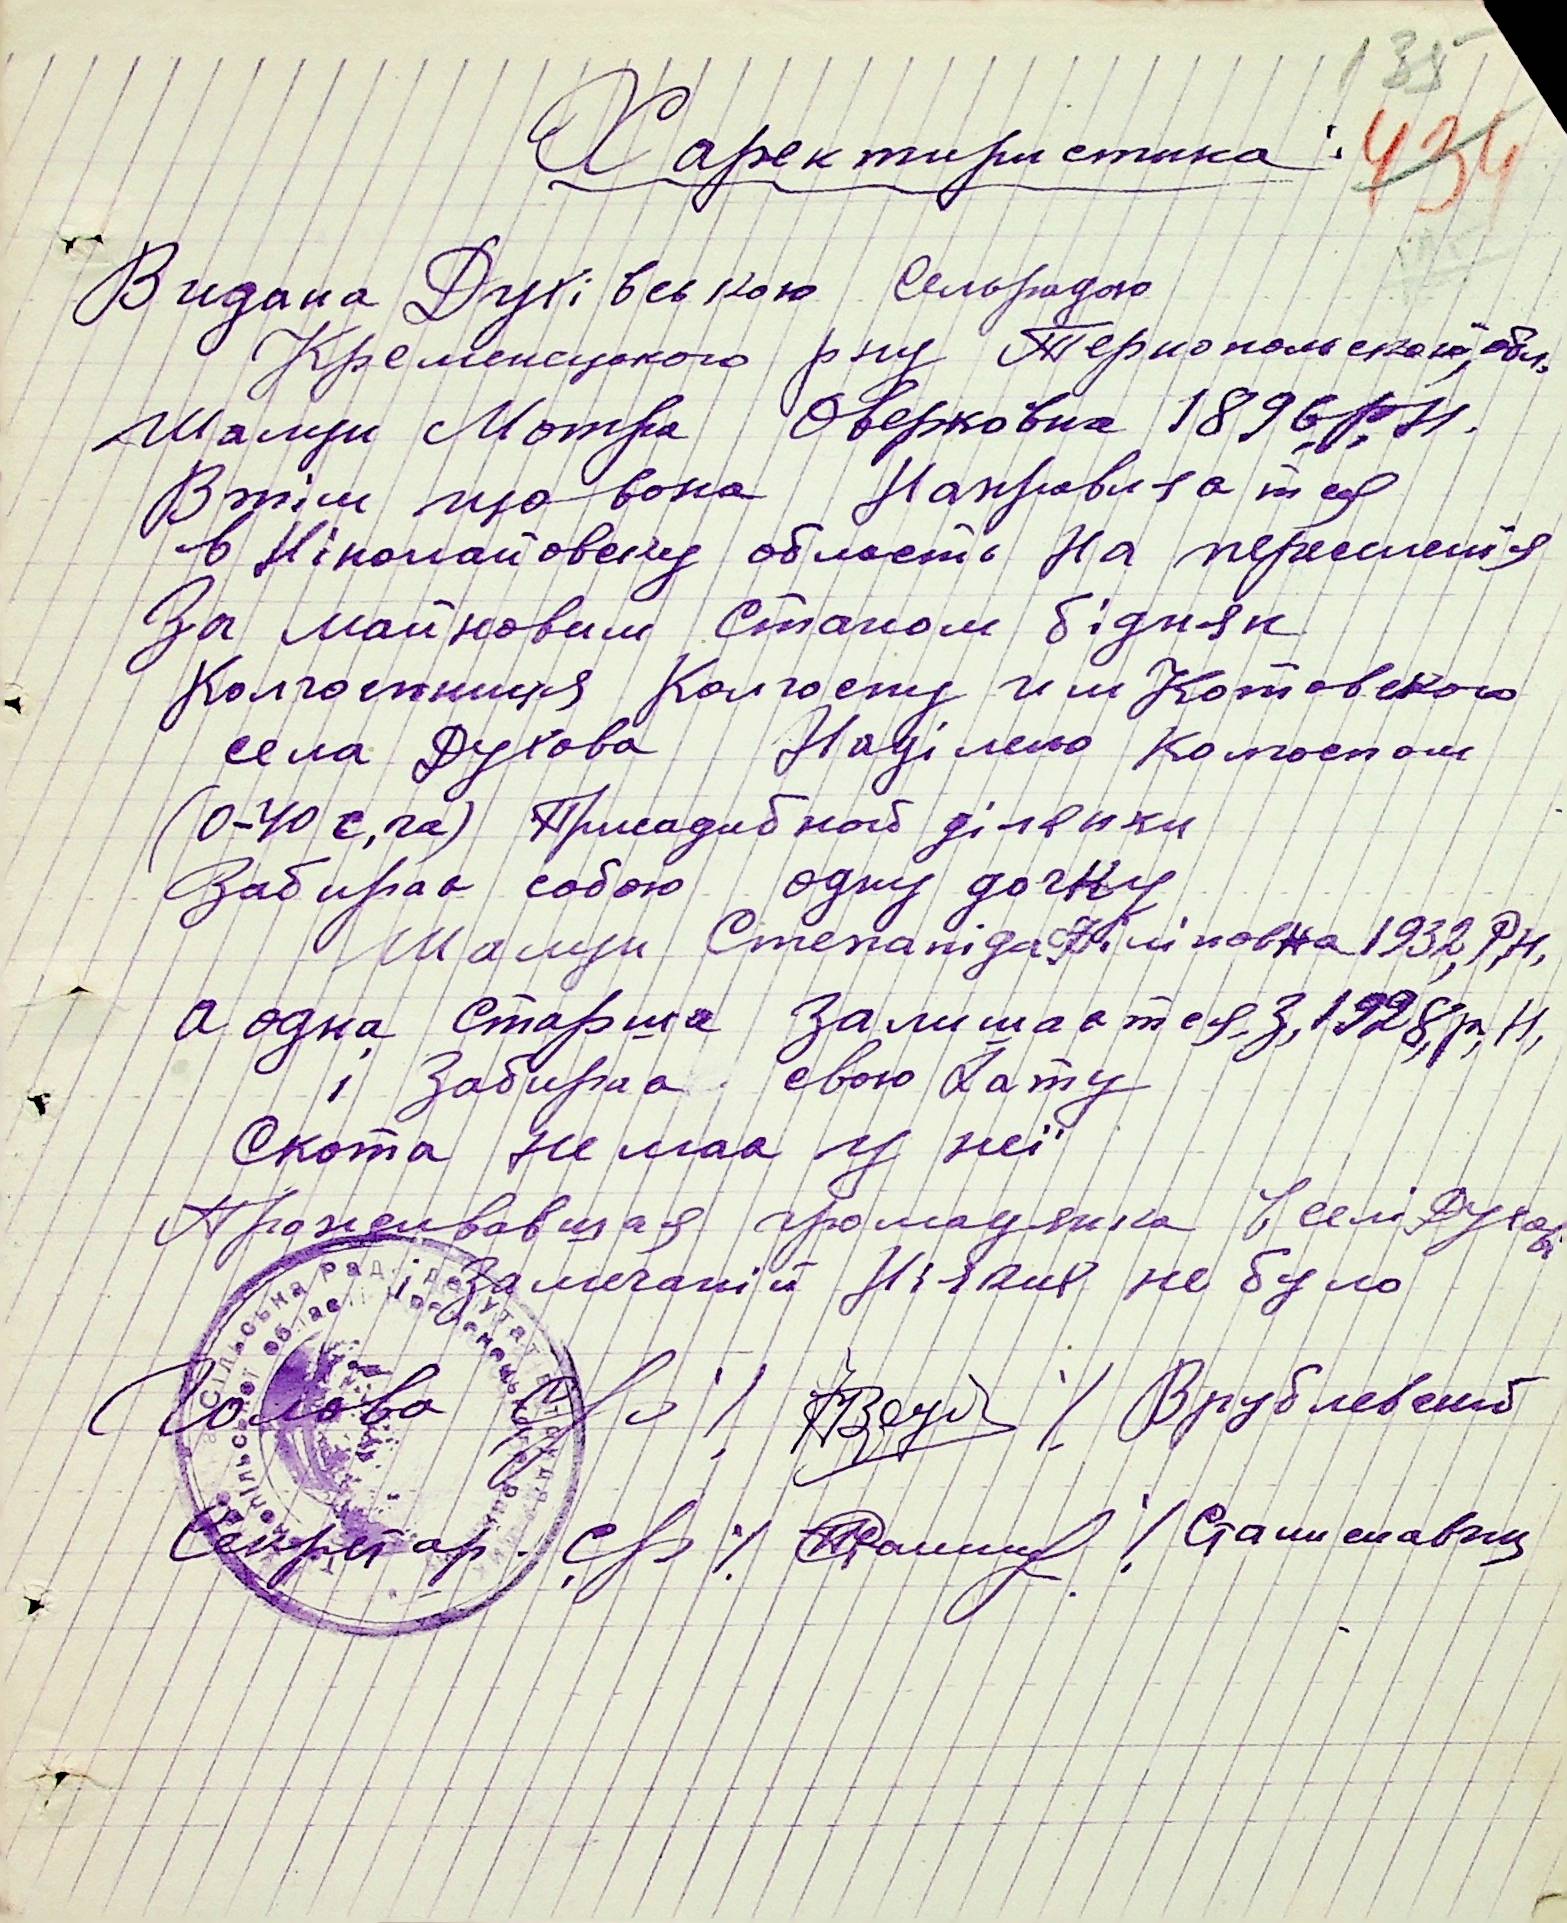 135
434
Харектиристика:
Видана Духівською Сельрадою
Кременецького рну Тернопольской, обл.
Шалуи Мотра Оверковна 1896 р. Н.
Втім що вона Направилатся
в Ніколайовску область На переселенія
За майновим Станом бідняк
Колгоспниця Колгоспу им Котовского
села Духова Наділено Колгоспом
(0-40 с, га) Присадибной ділянки
Забирає собою одну дочку
Шалуи Степаніда Філіповна 1932, Р, Н,
а одна старша залишаатся З, 1928, р, Н,
і Забираа свою Хату
Скота не маа у неї
Проживавшая громадянка в селі Духові
і Замечаній Ніяких не було
Голова С/Ради /. /. Врублевский
Секретар. С/р /. /. Станиславчу
Сільська Рада депутатів